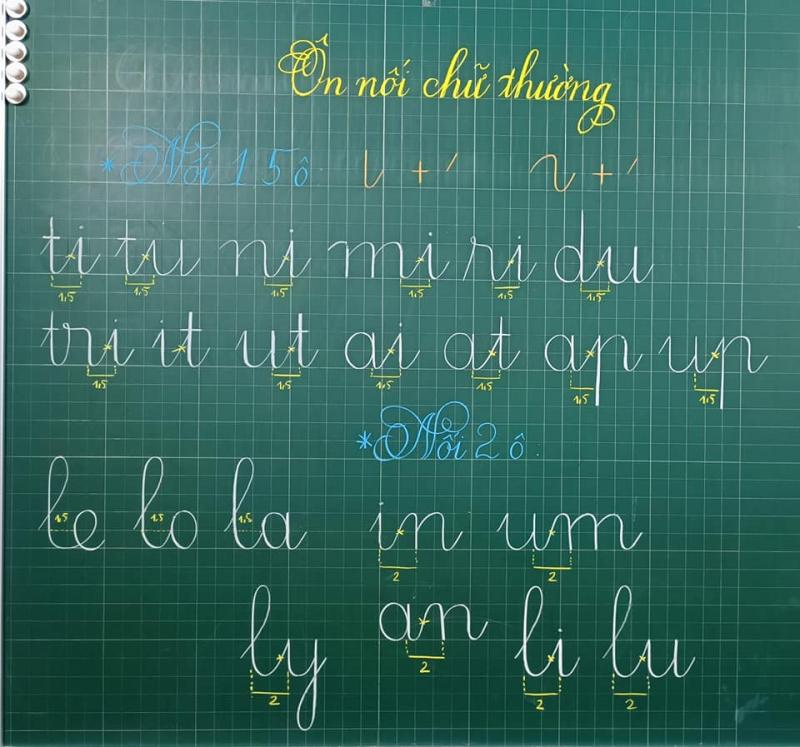 Ôn nối chữ thường
* Nối 1 5 ô: ɩ + ′ ɿ + ′
ti tu ni mi ri du
1,5 1,5 1,5 1,5 1,5 1,5
tri it ut ai at ap up
1,5 1,5 1,5 1,5 1,5 1,5
* Nối 2 ô:
le lo la in um
1,5 1,5 1,5 2 2
ly an li lu
2 2 2 2